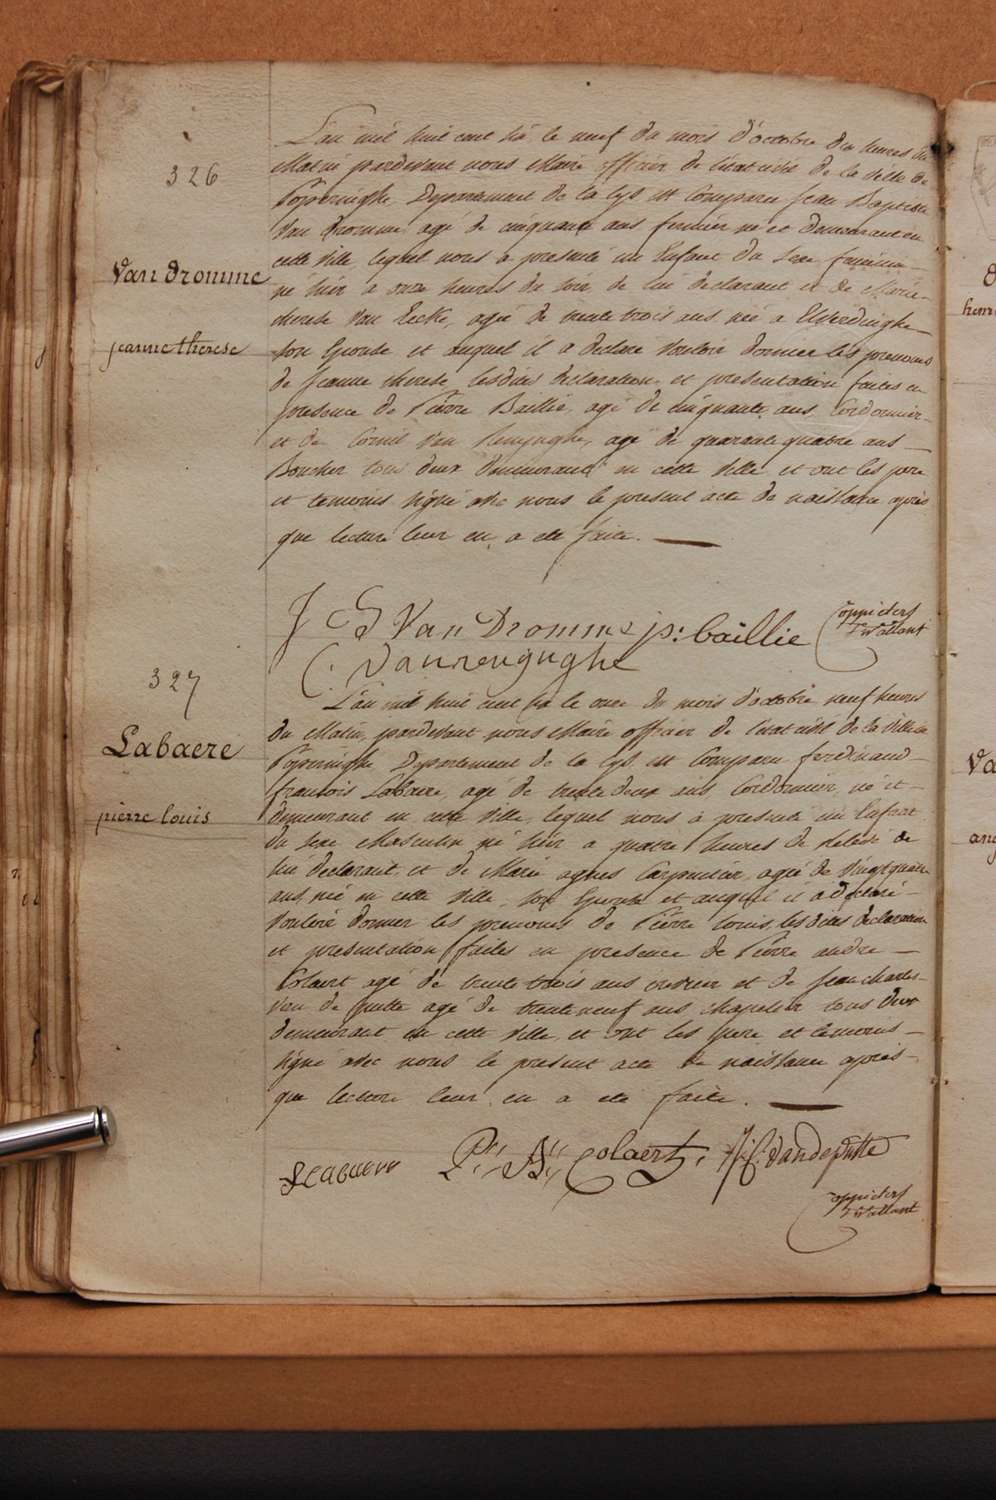 326
Van Dromme
jeanne therese
L'an mil huit cent six le neuf du mois d'octobre dix heures du
Matin pardevant nous Maire officier de l'etat civil de la ville de
Poperinghe, Departement de la Lys est Comparu Jean Baptiste
Van Dromme agé de cinquante ans fermier né et demeurant en
cette ville, lequel nous a presenté un Enfant du Sexe feminin
né hier a onze heures du soir de lui declarant et de Marie
therese Van Eecke, agée de trente trois ans née a Elverdinghe
son Epouse et auquel il a declaré vouloir donner les prenoms
de Jeanne therese, lesdites declaration et presentation faites en
presence de Pierre Baillie, agé de cinquante ans Cordonnier
et de Cornil Van Renynghe, agé de quarante quatre ans
Boucher tous deux demeurant en cette ville et ont les pere
et temoins signé avec nous le present acte de naissance après
que lecture leur en a eté faite.
J B Van Dromme p: baillie
C. vanrenynghe
327
Labaere
pierre louis
L'an mil huit cent six le onze du mois d'octobre neuf heures
du Matin, pardevant nous Maire officier de l'etat civil de la ville de
Poperinghe Departement de la Lys est Comparu ferdinand
francois Labaere, agé de trente deux ans Cordonnier, né et
demeurant en cette ville, lequel nous a presenté un Enfant
du sexe Masculin né hier a quatre heures de relevé de
lui declarant, et de Marie agnes Carpentier, agée de vingt quatre
ans, née en cette ville, son Epouse et auquel il a declaré
vouloir donner les prenoms de Pierre louis, lesdites declaration
et presentation faites en presence de Pierre andre
Colaert agé de trente trois ans et de Jean charles
Van de putte agé de trente neuf ans chapelier tous deux
demeurant en cette ville, et ont les pere et temoins
signé avec nous le present acte de naissance après
que lecture leur en a eté faite.
P: A: Colaert J: C: vandeputte